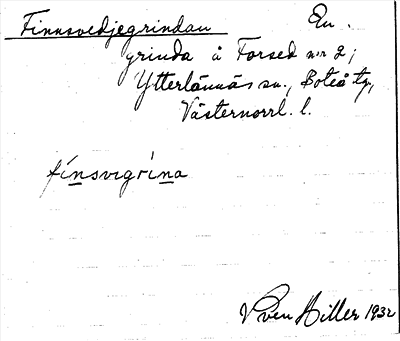 Finnsvedjegrindan En.
grinda å Forsed nr 2;
Ytterlännäs sn., Boteå tg,
Västernorrl. l.
fínsvegrìna
Sven Hiller 1932